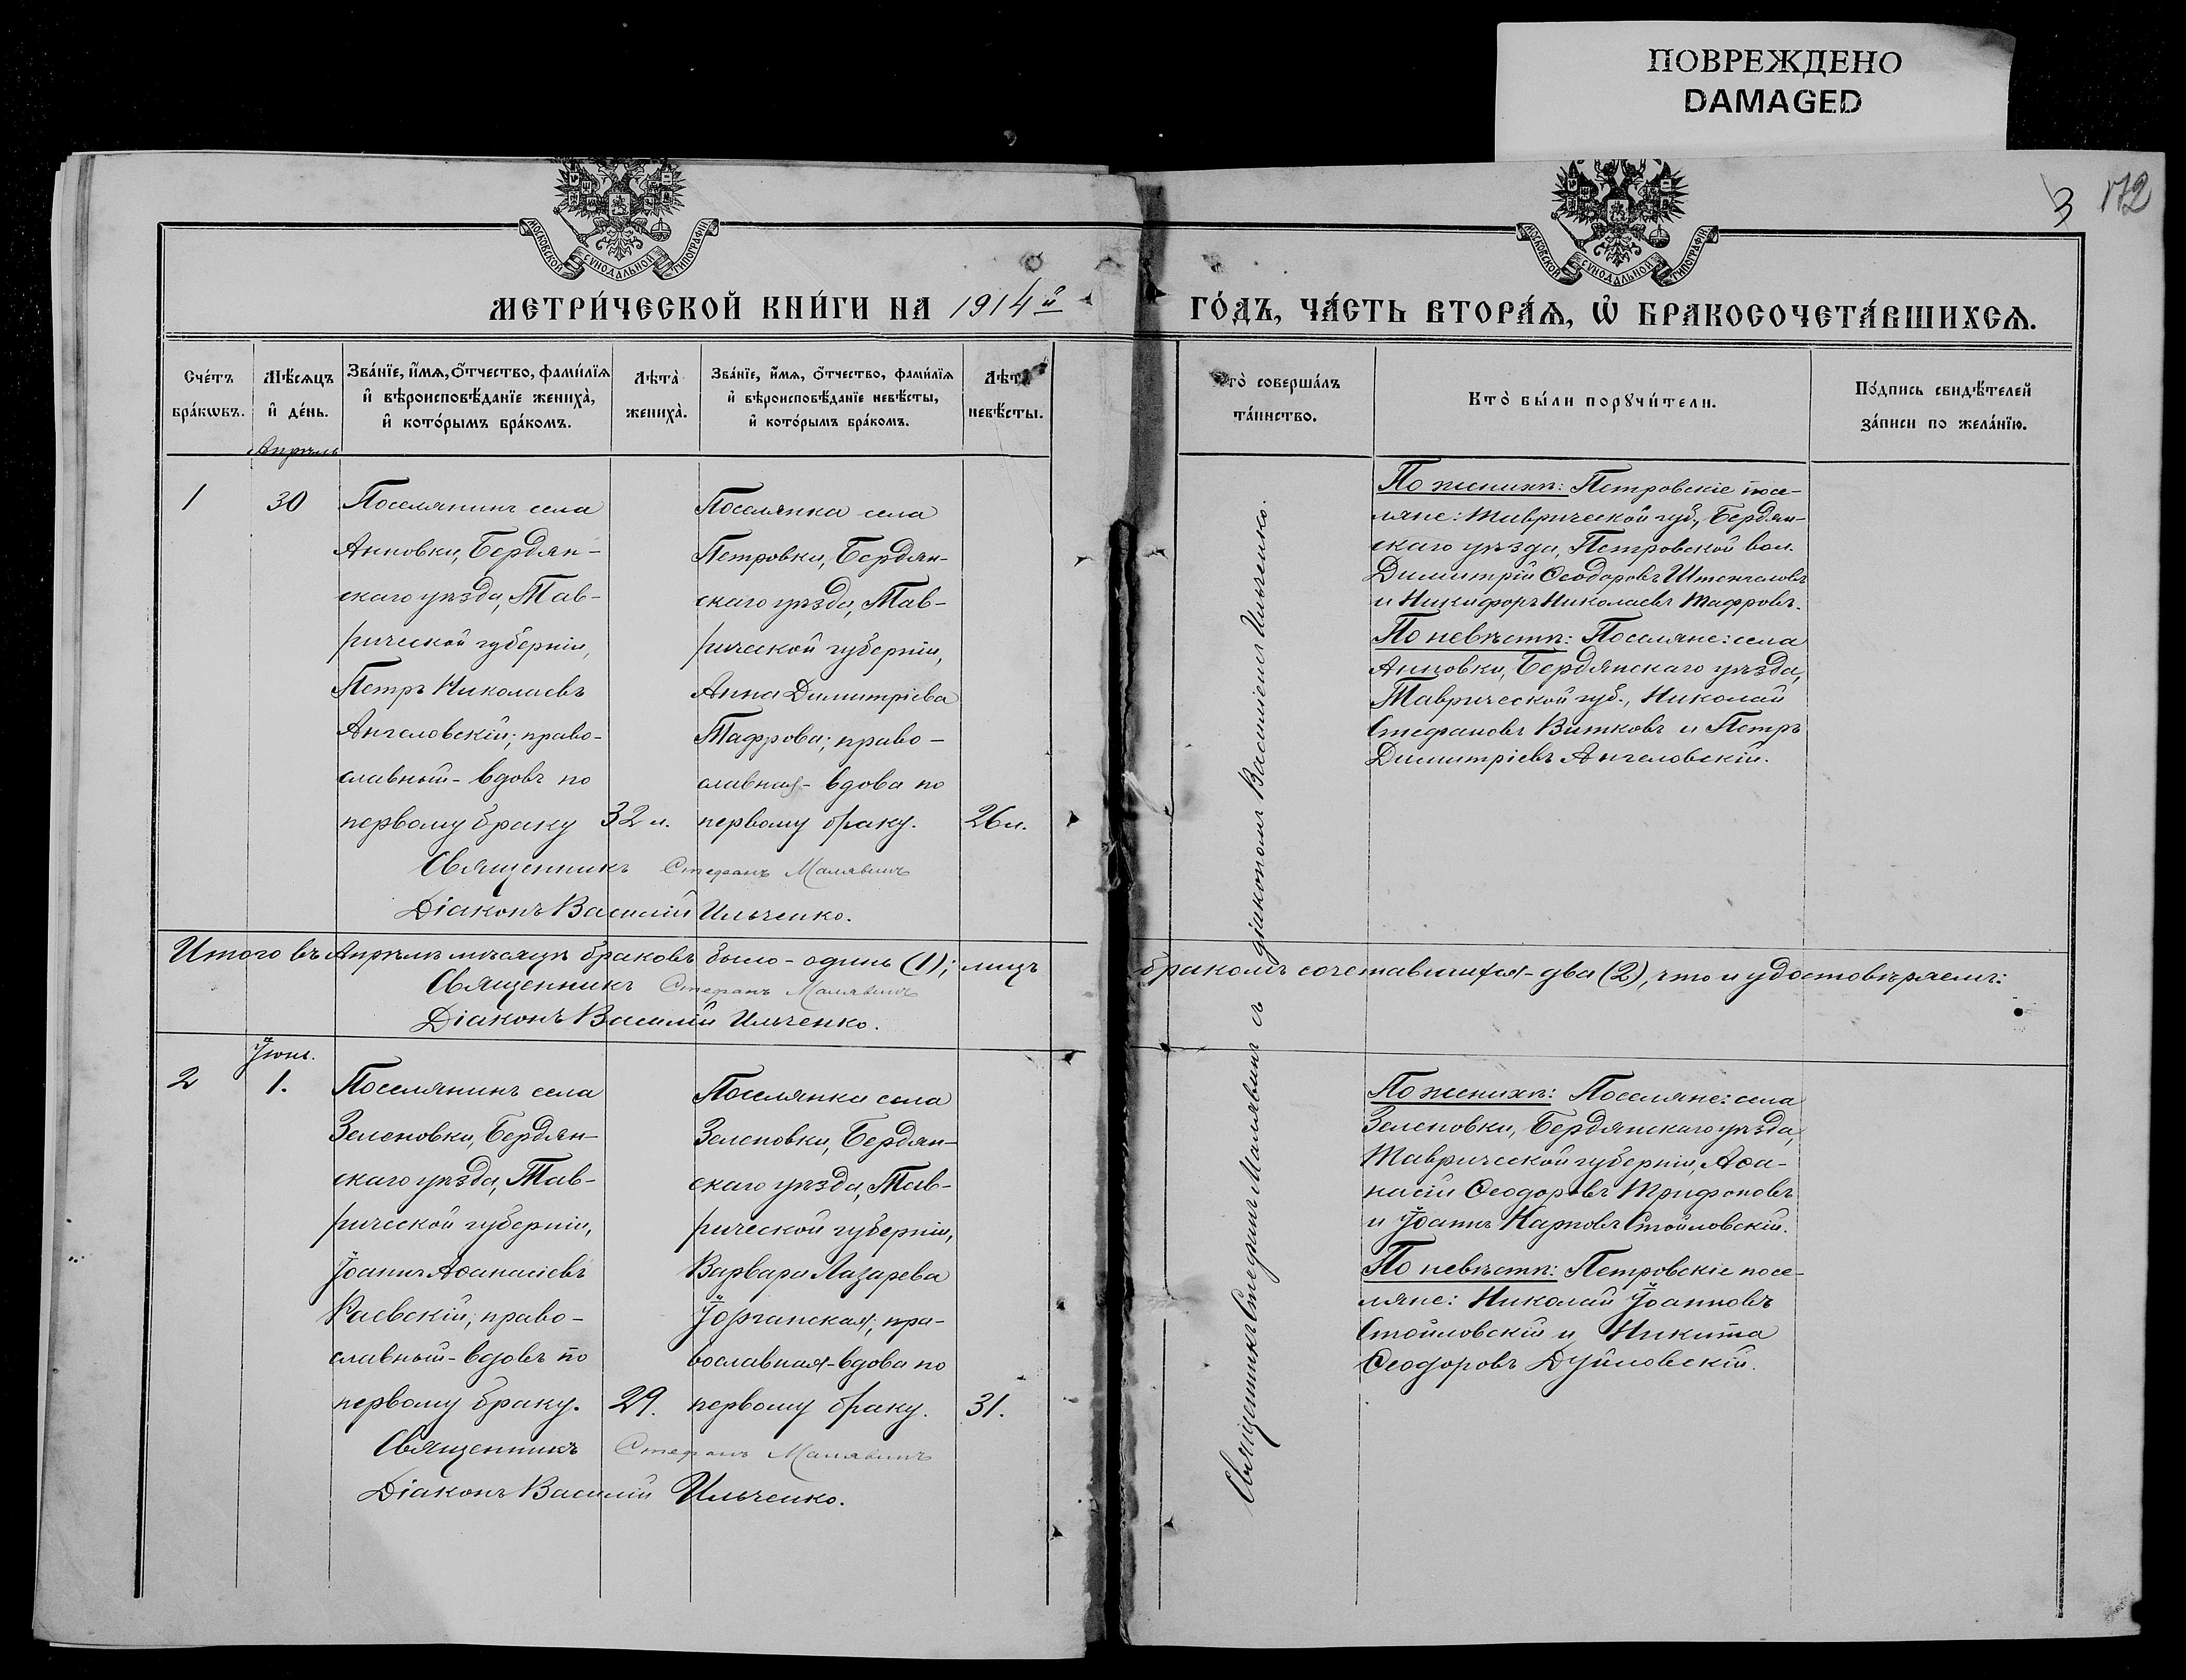 ПОВРЕЖДЕНО
DAMAGED
3 172
МОСКОВСКОЙ СУНОДАЛЬНОЙ ТИПОГРАФІИ
МОСКОВСКОЙ СУНОДАЛЬНОЙ ТИПОГРАФІИ
МЕТРИ́ЧЕСКОЙ КНИ́ГИ НА 1914й ГО́ДЪ, ЧА́СТЬ ВТОРА́Ѧ, Ѡ҆ БРАКОСОЧЕТА́ВШИХСѦ.
Сче́тъ бра́кѡвъ.
Мѣ́сѧцъ и҆ де́нь.
Зва́нїе, и҆́мѧ, ѻ҆́тчество, фами́лїѧ
и҆ вѣроисповѣ́данїе жениха̀,
и҆ кото́рымъ бра́комъ.
Лѣта̀ жениха̀.
Зва́нїе, и҆́мѧ, ѻ҆́тчество, фами́лїѧ
и҆ вѣроисповѣ́данїе невѣ́сты,
и҆ кото́рымъ бра́комъ.
Лѣта̀ невѣ́сты.
то̀ соверша́лъ
та́инство.
Кто̀ бы́ли порꙋчи́тели.
По́дпись свидѣ́телей
за́писи по жела́нїю.
Апрѣль
1
30
Поселянинъ села
Анновки, Бердян-
скаго уѣзда, Тав-
рической губерніи,
Петръ Николаевъ
Ангеловскій; право-
славный - вдовъ по
первому браку
32 л.
Поселянка села
Петровки, Бердян-
скаго уѣзда, Тав-
рической губерніи,
Анна Димитріева
Тафрова; право-
славная - вдова по
первому браку.
26 л.
Священникъ Стефанъ Малявинъ
Діаконъ Василій Ильченко.
По женихѣ: Петровскіе посе-
ляне: Таврической губ., Бердян-
скаго уѣзда, Петровской вол.
Димитрій Ѳеодоровъ Штенгеловъ
и Никифоръ Николаевъ Тафровъ.
По невѣстѣ: Поселяне: села
Анновки, Бердянскаго уѣзда,
Таврической губ., Николай
Стефановъ Витковъ и Петръ
Димитріевъ Ангеловскій.
Священникъ Стефанъ Малявинъ съ діакономъ Василіемъ Ильченко.
Итого въ Апрѣлѣ мѣсяцѣ браковъ было - одинъ (1); лицъ бракомъ сочетавшихся - два (2), что и удостовѣряемъ:
Священникъ Стефанъ Малявинъ
Діаконъ Василій Ильченко.
Іюнь.
2
1.
Поселянинъ села
Зеленовки, Бердян-
скаго уѣзда, Тав-
рической губерніи,
Іоаннъ Аѳанасіевъ
Раевскій; право-
славный - вдовъ по
первому браку.
29.
Поселянка села
Зеленовки, Бердян-
скаго уѣзда, Тав-
рической губерніи,
Варвара Лазарева
Іорганская; пра-
вославная - вдова по
первому браку.
31.
Священникъ Стефанъ Малявинъ
Діаконъ Василій Ильченко.
По женихѣ: Поселяне: села
Зеленовки, Бердянскаго уѣзда,
Таврической губерніи, Аѳа-
насій Ѳеодоровъ Трифоновъ
и Іоаннъ Карповъ Стойловскій.
По невѣстѣ: Петровскіе посе-
ляне: Николай Іоанновъ
Стойловскій и Никита
Ѳеодоровъ Дуйловскій.